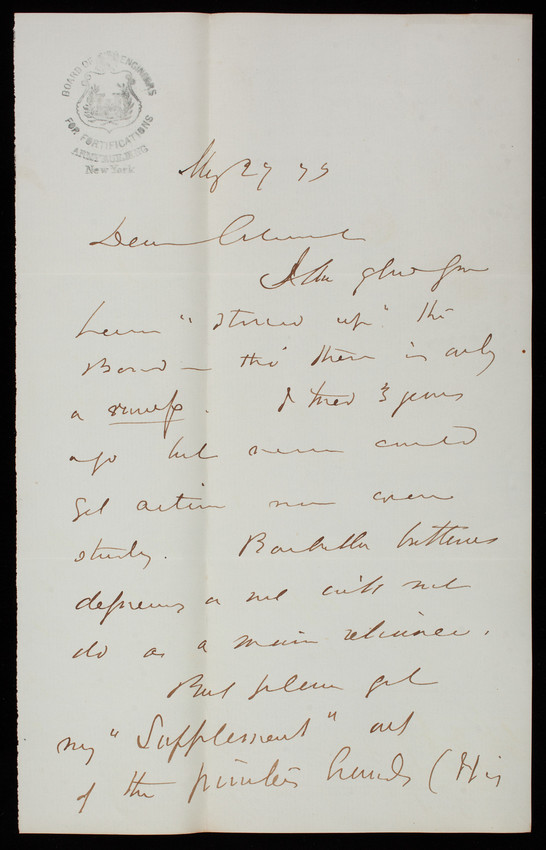 BOARD OF ENGINEERS
FOR FORTIFICATIONS
ARMY BUILDING
New York
27 73
Dear
I am glad you
have "stirred up" the
Board - tho' there is only
a . I tried 3 years
ago but never could
get action nor even
study. Barbette batteries
depressing or not will not
do as a main reliance.
But please get
my "Supplement" out
of the printer's hands (His